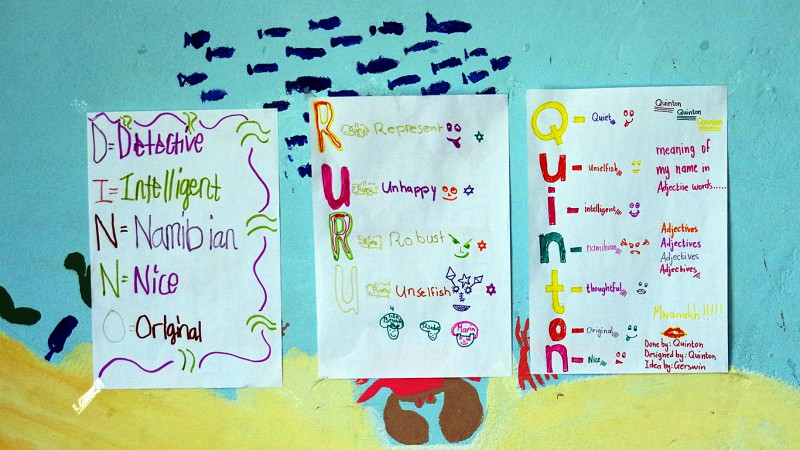 D=Detective
I=Intelligent
N=Namibian
N=Nice
O=Original
R Represent
U Unhappy
R Robust
U Unselfish
Quinton
Quinton
Quinton
Q-Quiet
u-Unselfish
i-intelligent
n-namibian
t-thoughtful
o-Original
n-Nice
meaning of
my name in
Adjective words......
Adjectives
Adjectives
Adjectives
Adjectives
Mwaaahh!!!!!
Done by: Quinton
Designed by: Quinton
Idea by: Gerswin